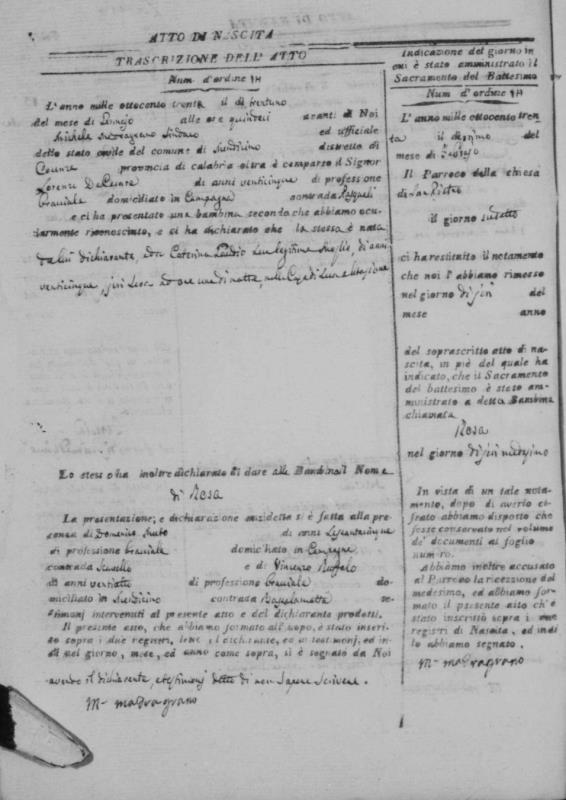 ATTO DI NASCITA
TRASCRIZIONE DELL' ATTO
Num d'ordine 14
L'anno mille ottocento trenta il dì trentuno
del mese di alle ore quindeci avanti di Noi
Michele Sindaco ed uffiziale
dello stato civile del comune di distretto di
Cosenza provincia di calabria citra è comparso il Signor
Lorenzo De di anni venticinque di professione
braciale domiciliato in Campagna contrada
e ci ha presentato una bambina secondo che abbiamo ocu-
larmente riconosciuto, e ci ha dichiarato che la stessa è nata
da lui dichiarante, e da Caterina sua legittima moglie, di anni
venticinque, ad ore una di notte, nella Casa di sua abitazione
Lo stesso ha inoltre dichiarato di dare alla Bambina il Nome
di Rosa
La presentazione, e dichiarazione anzidetta si è fatta alla pre-
senza di Domenico di anni
di professione braciale domiciliato in Campagna
contrada e di Vincenzo Ruffolo
di anni ventiotto di professione braciale do-
miciliato in contrada te-
stimonj intervenuti al presente atto e del dichiarante prodotti.
Il presente atto, che abbiamo formato all'uopo, è stato inseri-
to sopra i due registri, letto al dichiarante, ed ai testimonj, ed in-
di nel giorno, mese, ed anno come sopra, si è segnato da Noi
avendo il dichiarante, e testimonj detto di non sapere scrivere.
Indicazione del giorno in
cui è stato amministrato il
Sacramento del Battesimo
Num d'ordine 14
L' anno mille ottocento tren
ta il del
mese di
Il Parroco della chiesa
di San Pietro
il giorno sudetto
ci ha restituito il notamento
che noi l'abbiamo rimesso
nel giorno di jeri del
mese anno
del soprascritto atto di na-
scita, in piè del quale ha
indicato, che il Sacramento
del battesimo è stato am-
ministrato a detta Bambina
chiamata
Rosa
nel giorno di jeri medesimo
In vista di un tale nota-
mento, dopo di averlo ci-
frato abbiamo disposto che
fosse conservato nel volume
de' documenti al foglio
numero.
Abbiamo inoltre accusato
al Parroco la ricezione del
medesimo, ed abbiamo for-
mato il presente atto ch'è
stato inscritto sopra i due
registri di Nascita, ed indi
lo abbiamo segnato.